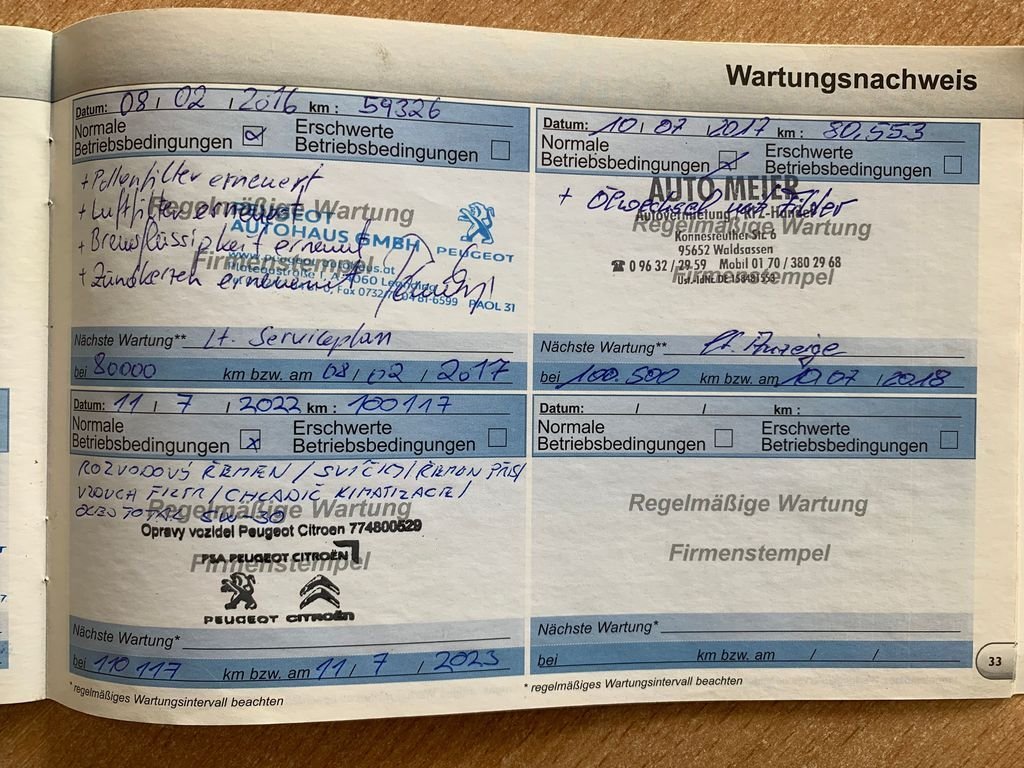 Wartungsnachweis
Datum: 08 / 02 / 2016 km : 59326
Normale
Betriebsbedingungen
Erschwerte
Betriebsbedingungen
+ Pollenfilter erneuert
+ Luftfilter erneuert
+ Bremsflüssigkeit erneuert
+ Zündkerzen erneuert
Regelmäßige Wartung
Firmenstempel
PEUGEOT
AUTOHAUS GMBH
PEUGEOT
PAOL 31
Nächste Wartung** Lt. Serviceplan
bei 80000 km bzw. am 08 / 02 / 2017
Datum: 10 / 07 / 2017 km : 80.553
Normale
Betriebsbedingungen
Erschwerte
Betriebsbedingungen
+ Ölwechsel
AUTO MEIER
Autovermietung
Regelmäßige Wartung
Konnersreuther Str. 6
95652 Waldsassen
☎ 0 96 32 / 29 59 Mobil 01 70 / 380 29 68
Firmenstempel
Nächste Wartung** lt. Anzeige
bei 100.500 km bzw. am 10 / 07 / 2018
Datum: 11 / 7 / 2022 km : 100117
Normale
Betriebsbedingungen
Erschwerte
Betriebsbedingungen
ROZVODOVÝ ŘEMEN / SVÍČKY /
VZDUCH FILTR / CHLADIČ KLIMATIZACE /
TOTAL 5W-30
Regelmäßige Wartung
Opravy vozidel Peugeot Citroen 774800529
PSA PEUGEOT CITROËN
Firmenstempel
PEUGEOT CITROËN
Nächste Wartung*
bei 110 117 km bzw. am 11 / 7 / 2023
Datum: / / km :
Normale
Betriebsbedingungen
Erschwerte
Betriebsbedingungen
Regelmäßige Wartung
Firmenstempel
Nächste Wartung*
bei km bzw. am / /
* regelmäßiges Wartungsintervall beachten
* regelmäßiges Wartungsintervall beachten
33